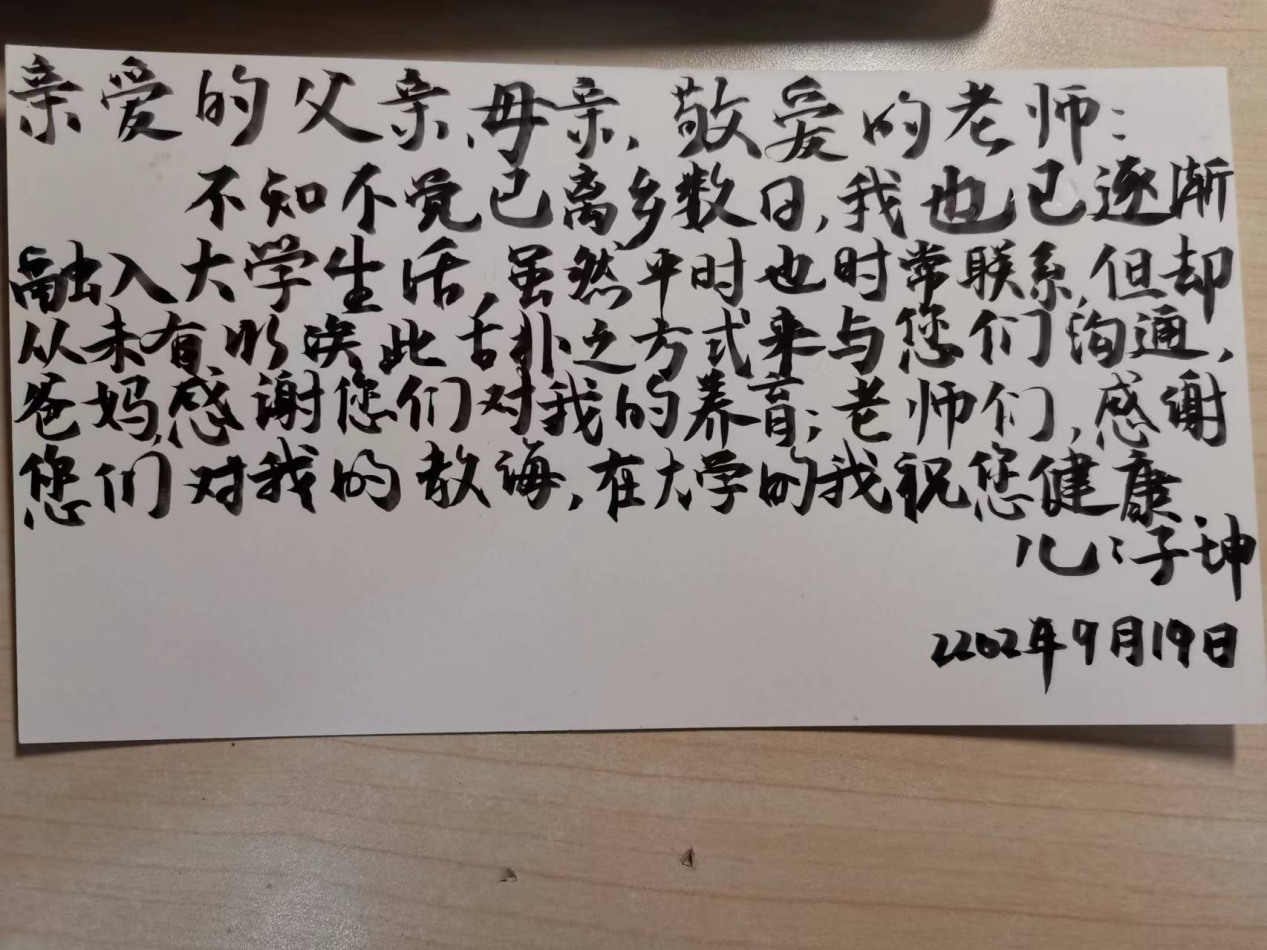 亲爱的父亲、母亲,敬爱的老师:
不知不觉已离乡数日,我也已逐渐
融入大学生活,虽然平时也时常联系,但却
从未有以此古朴之方式来与您们沟通,
爸妈,感谢您们对我的养育;老师们,感谢
您们对我的教诲,在大学的我祝您健康
儿:子坤
2202年9月19日